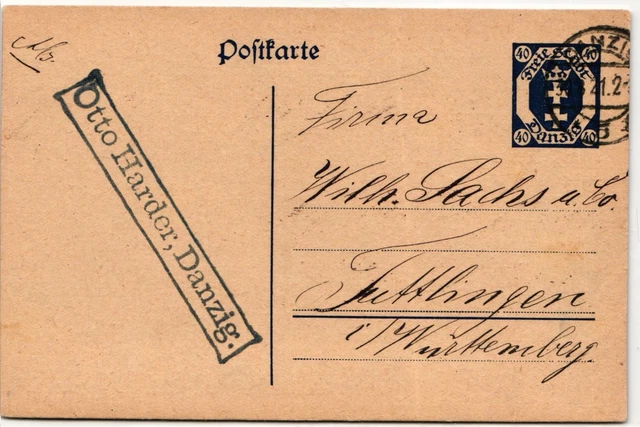 Postkarte
40 40
Freie Stadt
Danzig
40 40
DANZIG
21.2
Otto Harder, Danzig.
Firma
Wilh. Sachs u. Co.
Tuttlingen
i/Württemberg